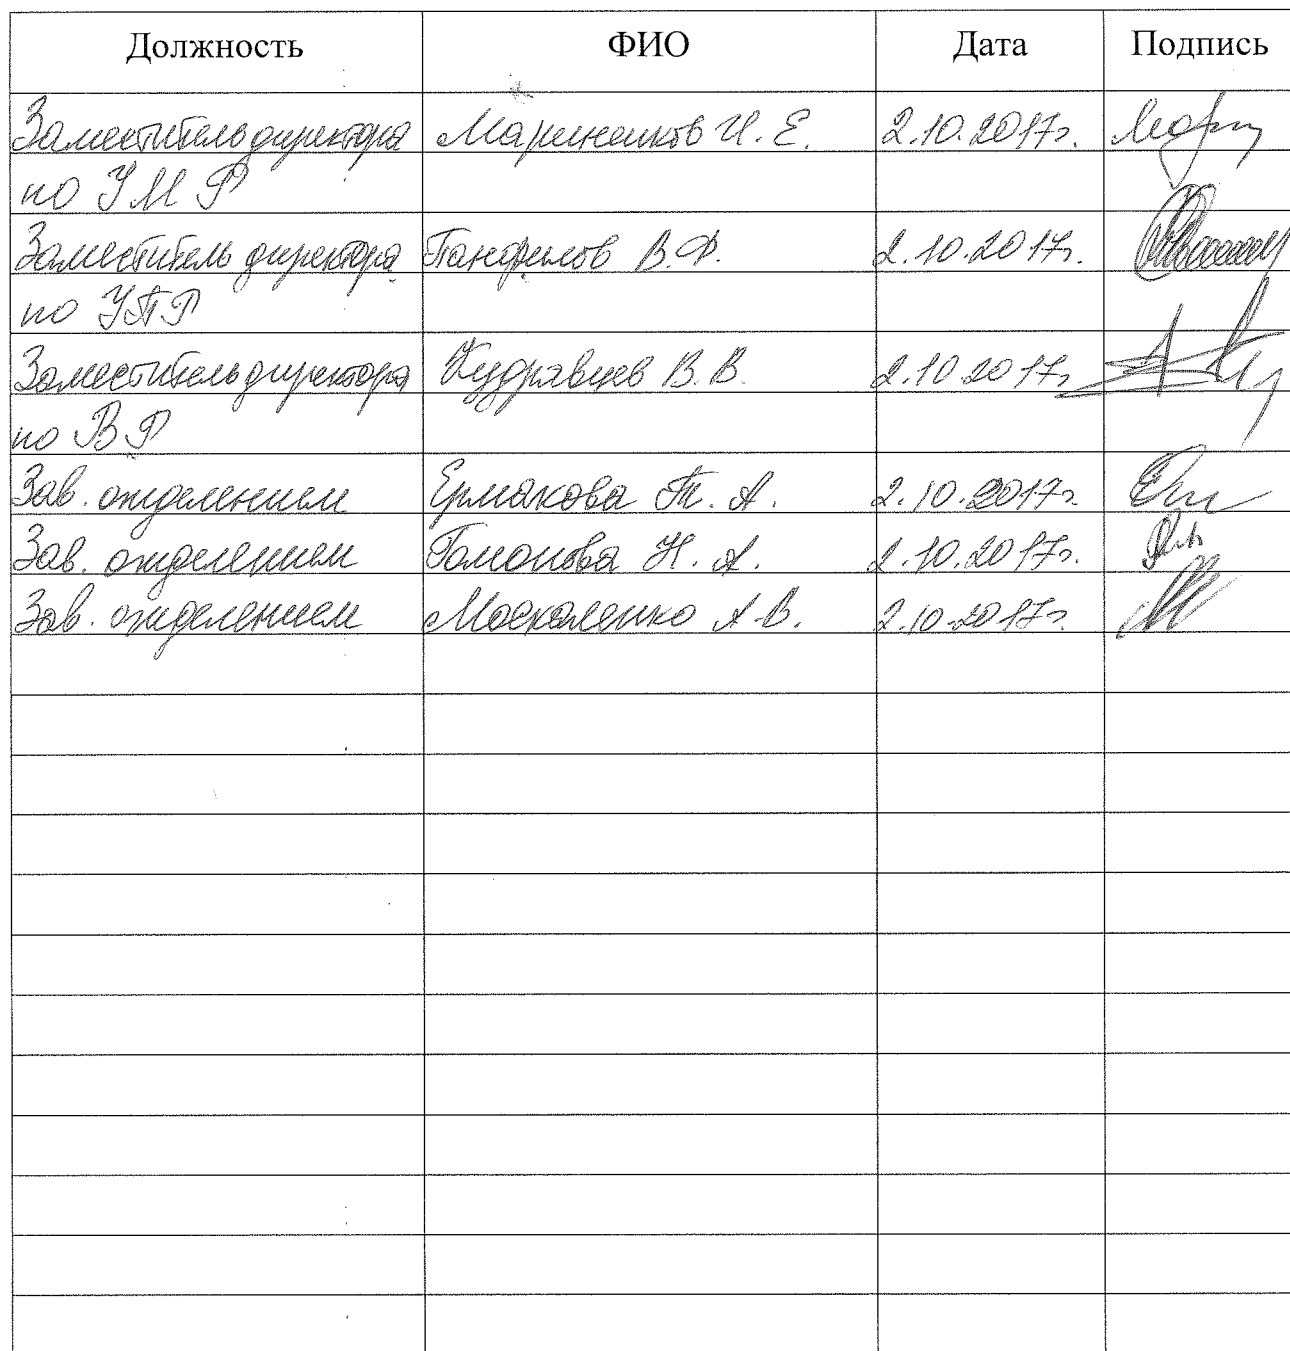 Должность ФИО Дата Подпись
Заместитель директора Мариненков И. Е. 2.10.2017г.
по УМР
Заместитель директора Панфилов В. Ф. 2.10.2017г.
по УПР
Заместитель директора Кудрявцев В. В. 2.10.2017г.
по ВР
Зав. отделением Ермакова Т. А. 2.10.2017г.
Зав. отделением Н. А. 2.10.2017г.
Зав. отделением Москаленко А. В. 2.10.2017г.